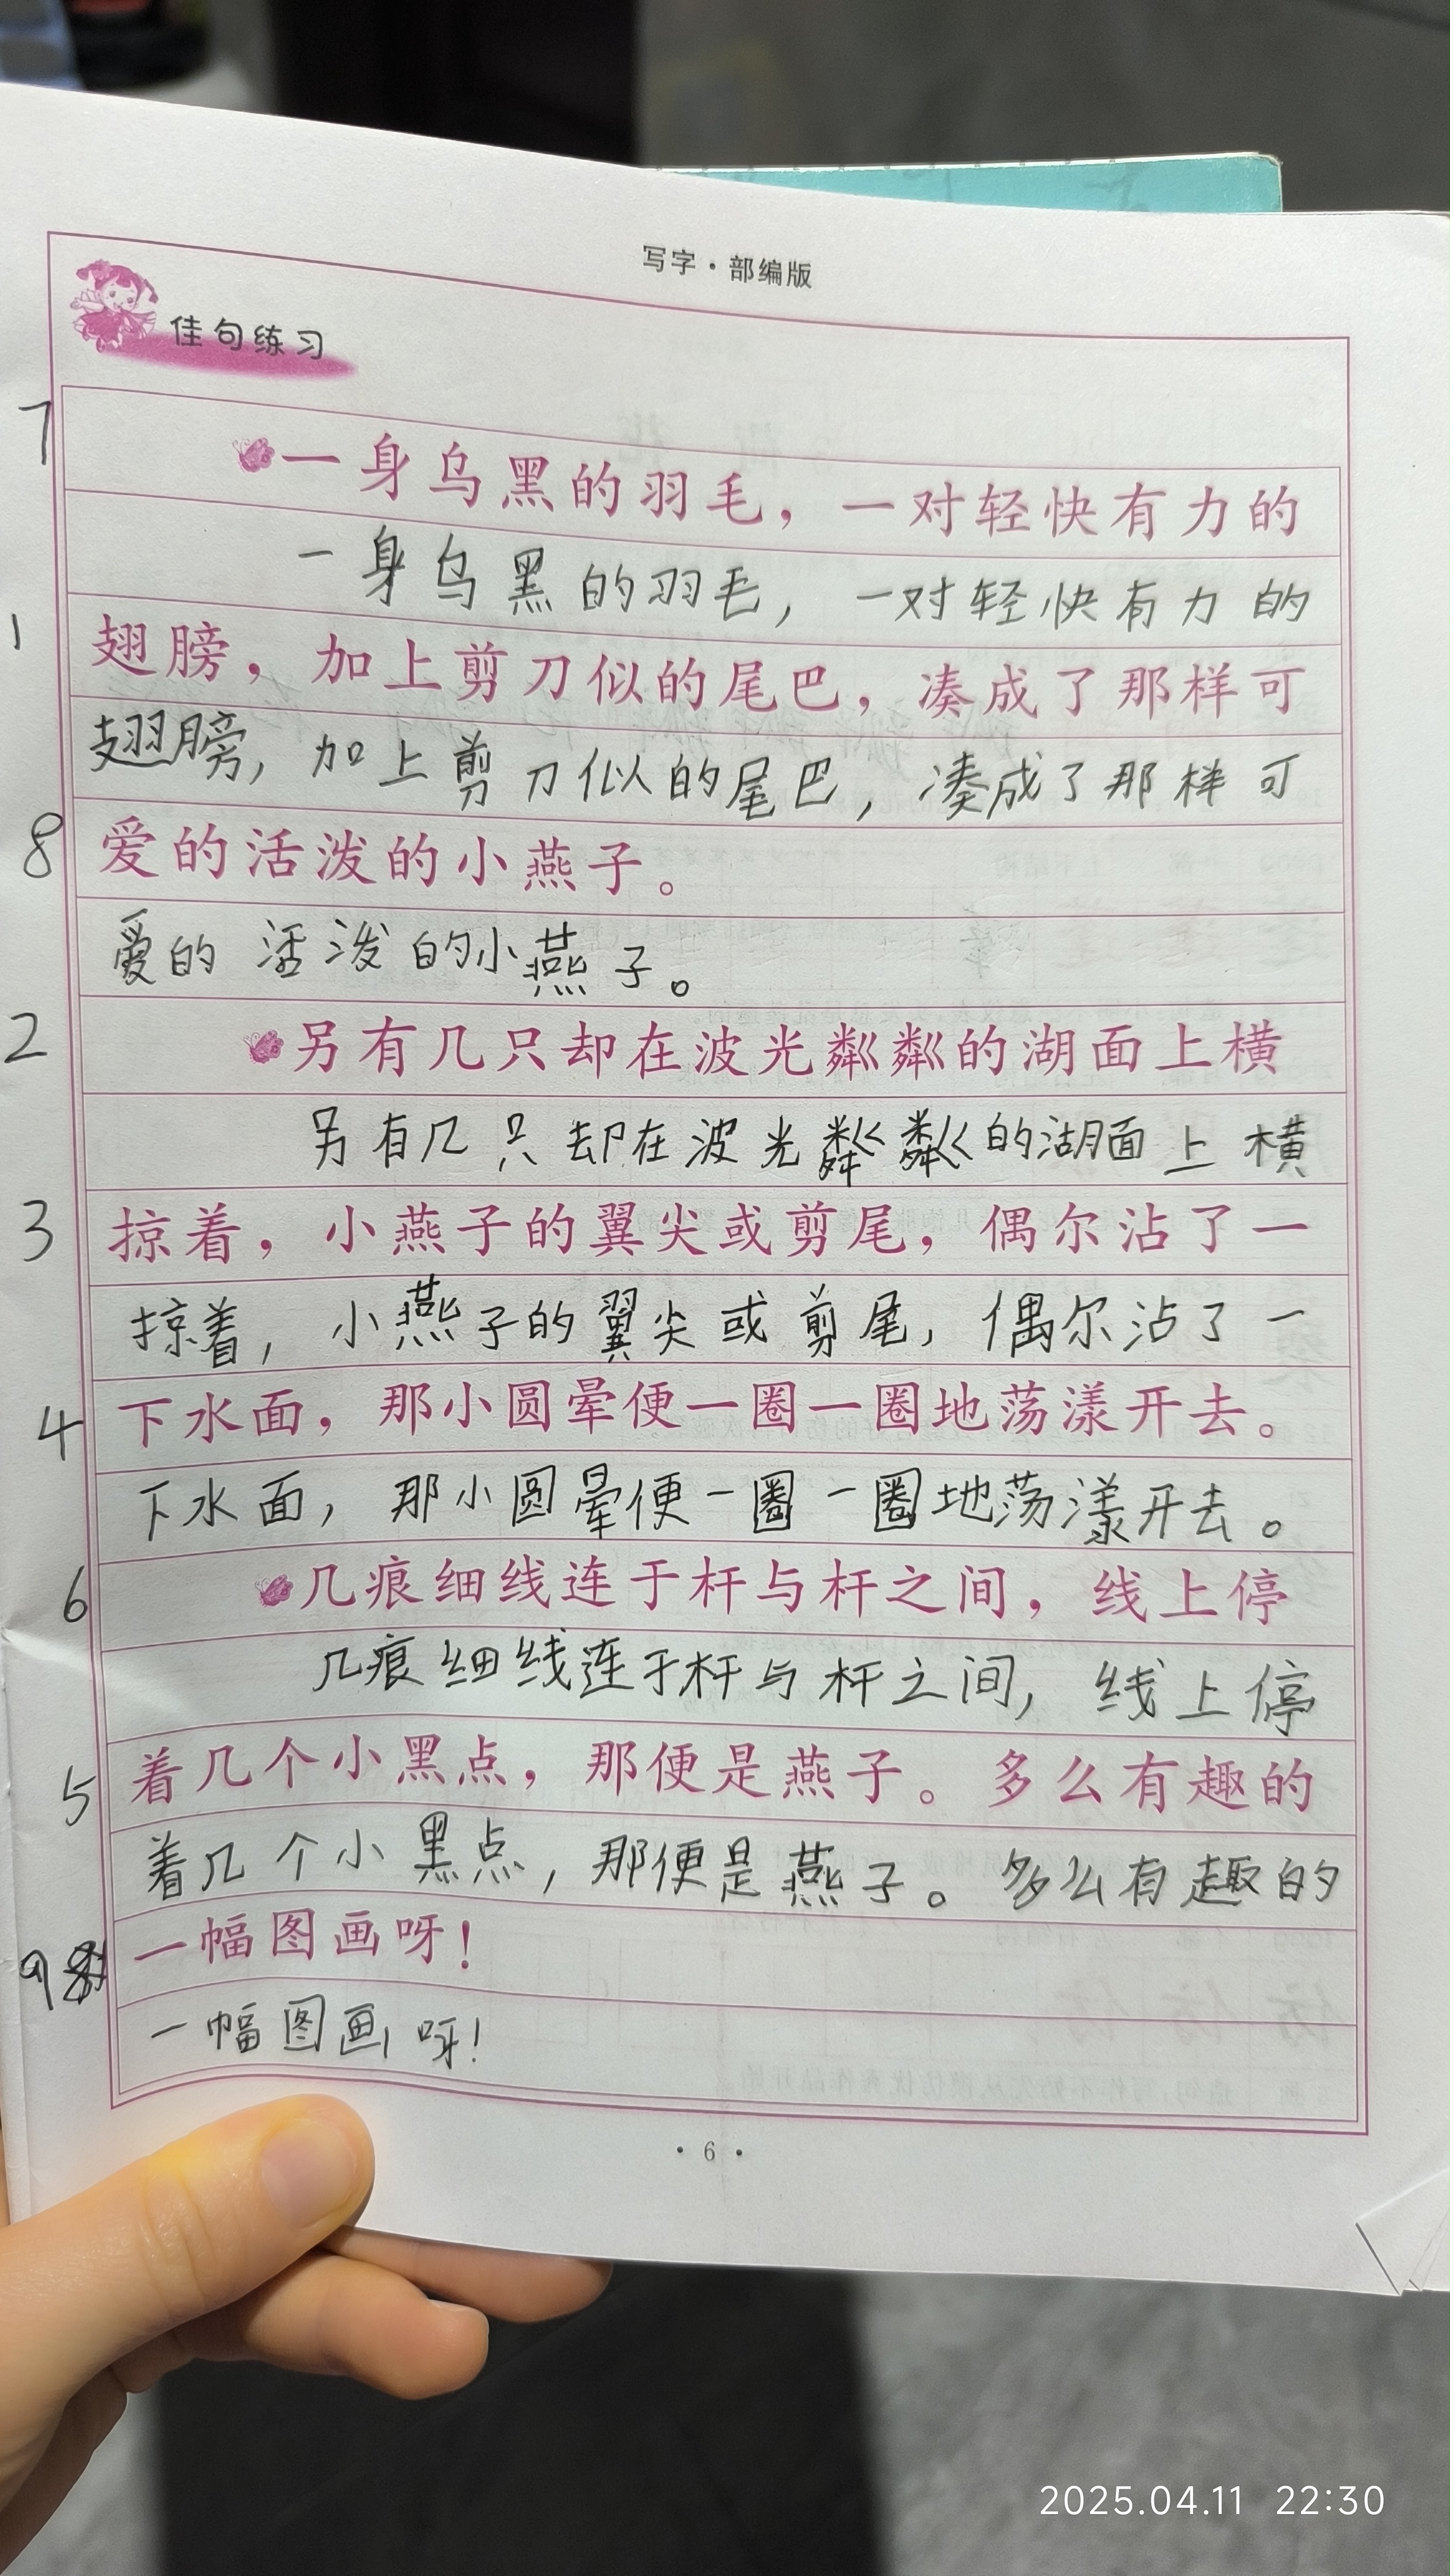 写字·部编版
佳句练习
7
一身乌黑的羽毛，一对轻快有力的
一身乌黑的羽毛，一对轻快有力的
1
翅膀，加上剪刀似的尾巴，凑成了那样可
翅膀，加上剪刀似的尾巴，凑成了那样可
8
爱的活泼的小燕子。
爱的活泼的小燕子。
2
另有几只却在波光粼粼的湖面上横
另有几只却在波光粼粼的湖面上横
3
掠着，小燕子的翼尖或剪尾，偶尔沾了一
掠着，小燕子的翼尖或剪尾，偶尔沾了一
4
下水面，那小圆晕便一圈一圈地荡漾开去。
下水面，那小圆晕便一圈一圈地荡漾开去。
6
几痕细线连于杆与杆之间，线上停
几痕细线连于杆与杆之间，线上停
5
着几个小黑点，那便是燕子。多么有趣的
着几个小黑点，那便是燕子。多么有趣的
9
一幅图画呀！
一幅图画呀！
·6·
2025.04.11 22:30